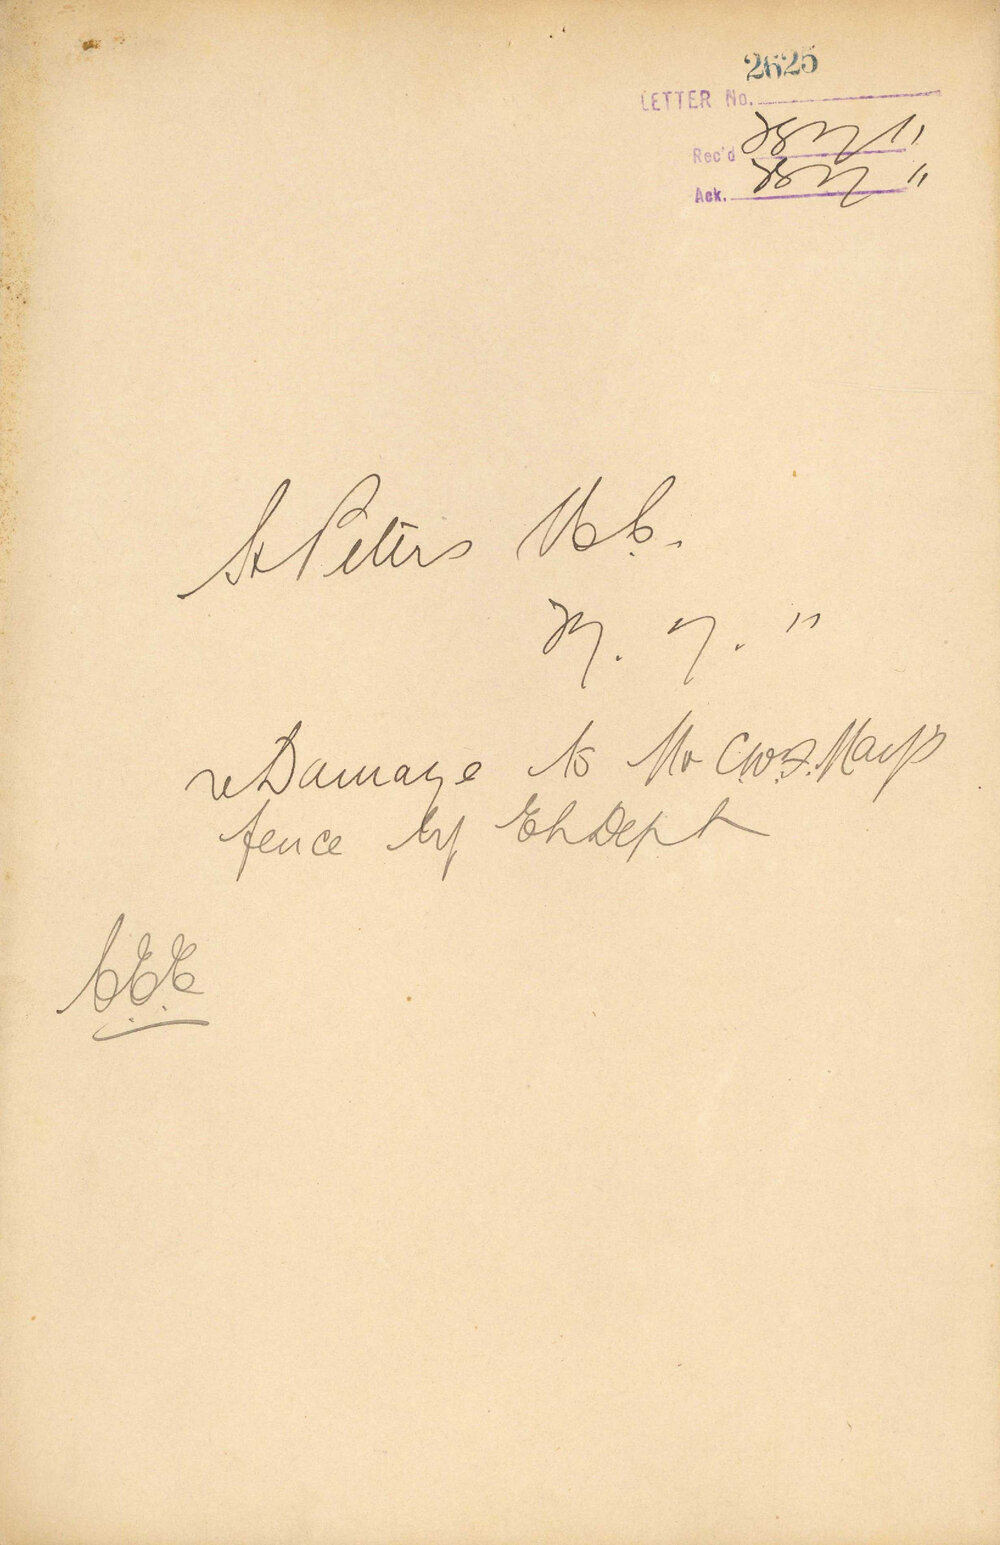 2625
LETTER No.
Rec'd 28 7 11
Ack. 28 7 11
St Peters M.C.
27. 7. 11
re Damage to Mr C.W.F. May's
fence by El Dept
C.E.E